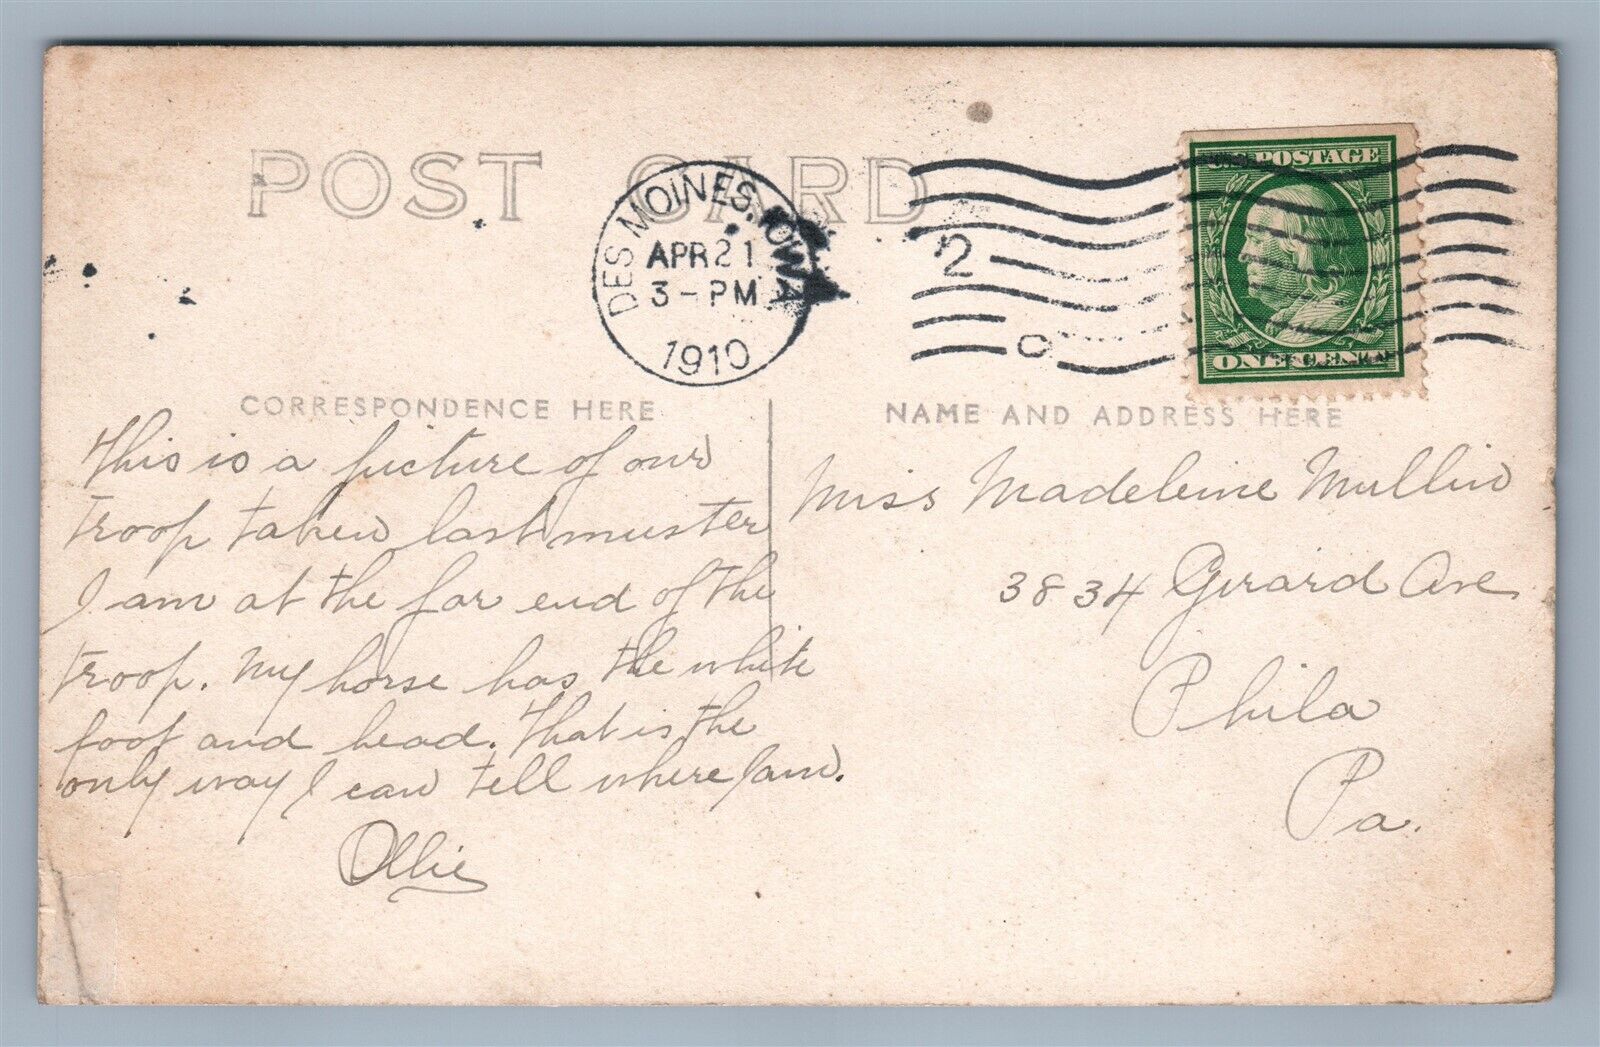 POST CARD
DES MOINES, IOWA
APR 21
3-PM
1910
2
C
POSTAGE
ONE CENT
CORRESPONDENCE HERE
NAME AND ADDRESS HERE
This is a picture of our
troop taken last muster
I am at the far end of the
troop. My horse has the white
foot and head. That is the
only way I can tell where I am.
Ollie
Miss Madeleine Mullin
3834 Girard Ave
Phila
Pa.